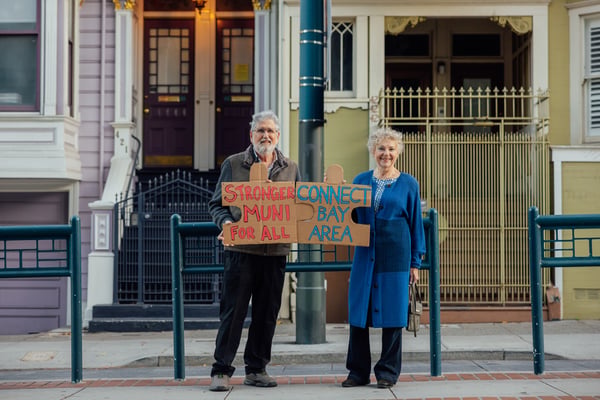 STRONGER
MUNI
FOR ALL
CONNECT
BAY
AREA